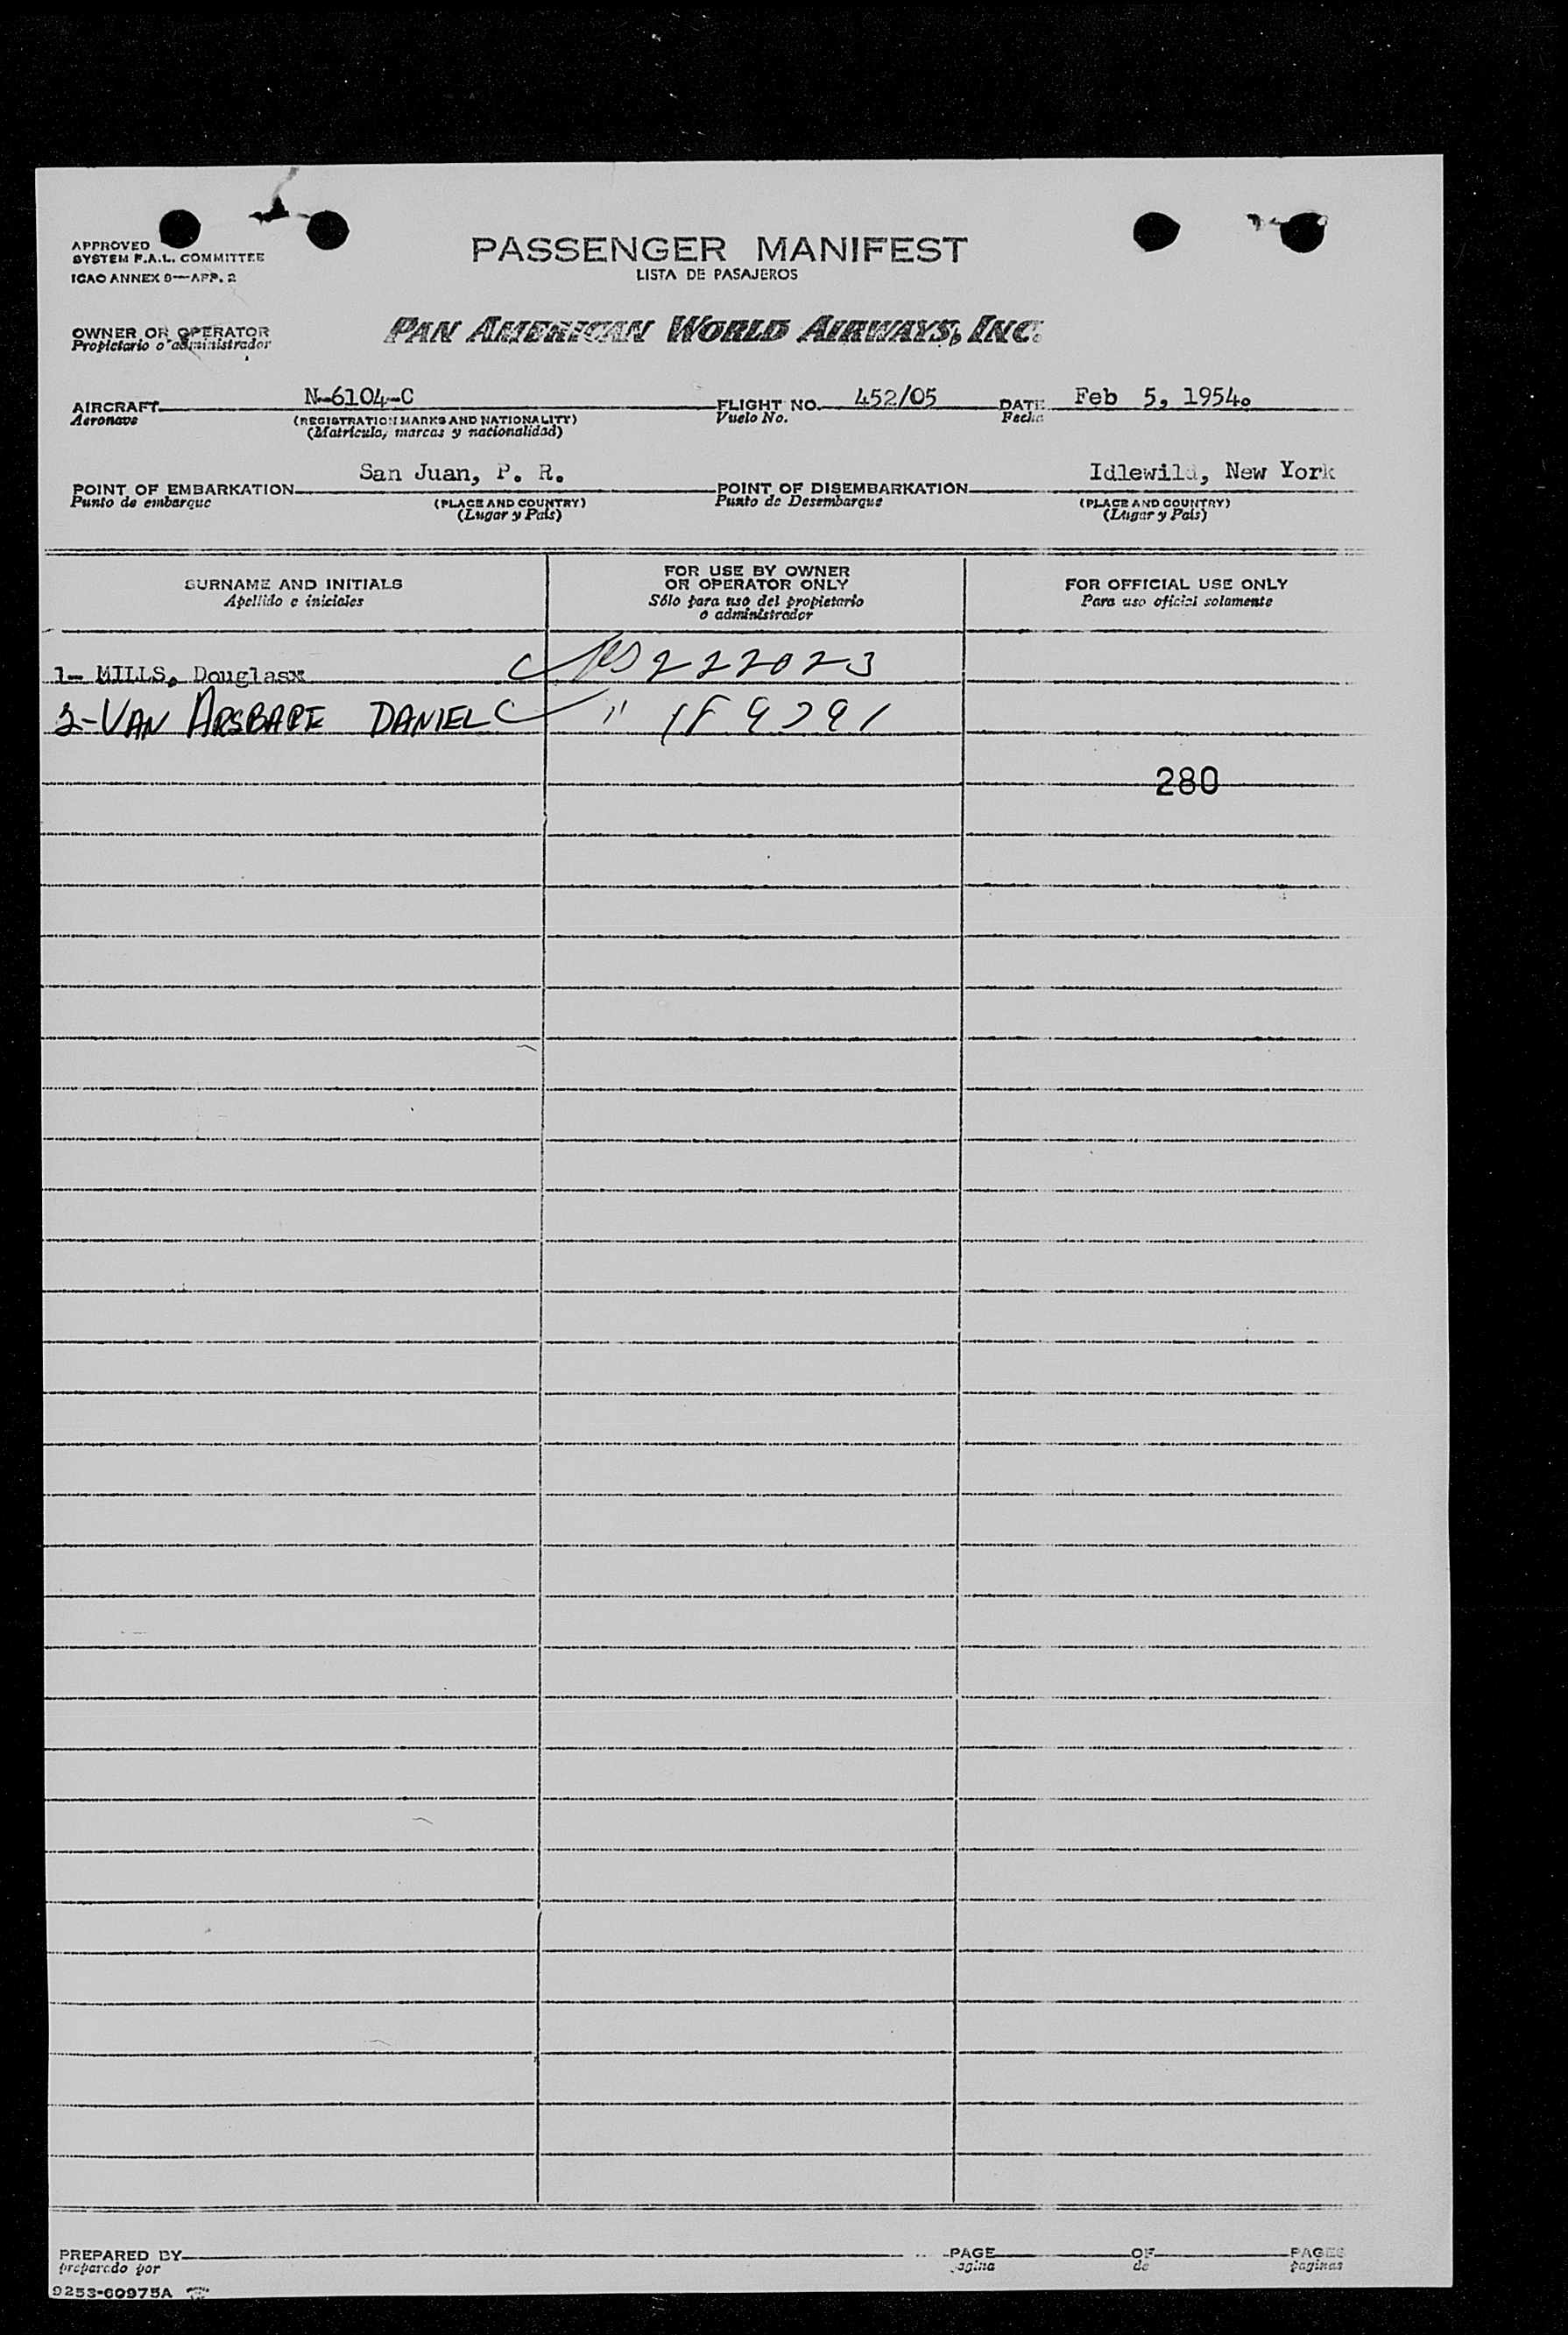 APPROVED
SYSTEM F.A.L. COMMITTEE
ICAO ANNEX 9—APP. 2
PASSENGER MANIFEST
LISTA DE PASAJEROS
OWNER OR OPERATOR
Propietario o administrador
PAN AMERICAN WORLD AIRWAYS, INC.
AIRCRAFT N-6104-C FLIGHT NO. 452/05 DATE Feb 5, 1954.
Aeronave (REGISTRATION MARKS AND NATIONALITY) Vuelo No. Fecha
(Matrícula, marcas y nacionalidad)
POINT OF EMBARKATION San Juan, P. R. POINT OF DISEMBARKATION Idlewild, New York
Punto de embarque (PLACE AND COUNTRY) Punto de Desembarque (PLACE AND COUNTRY)
(Lugar y País) (Lugar y País)
SURNAME AND INITIALS
Apellido e iniciales
FOR USE BY OWNER
OR OPERATOR ONLY
Sólo para uso del propietario
o administrador
FOR OFFICIAL USE ONLY
Para uso oficial solamente
1- MILLS, Douglasx 222023
2-VAN ARSBAPE DANIEL "
280
PREPARED BY PAGE OF PAGES
preparado por pagina de paginas
9253-60975A